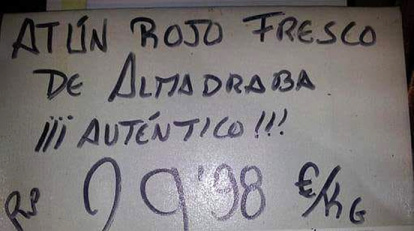 ATÚN ROJO FRESCO
DE ALMADRABA
¡¡¡AUTÉNTICO!!!
€/KG